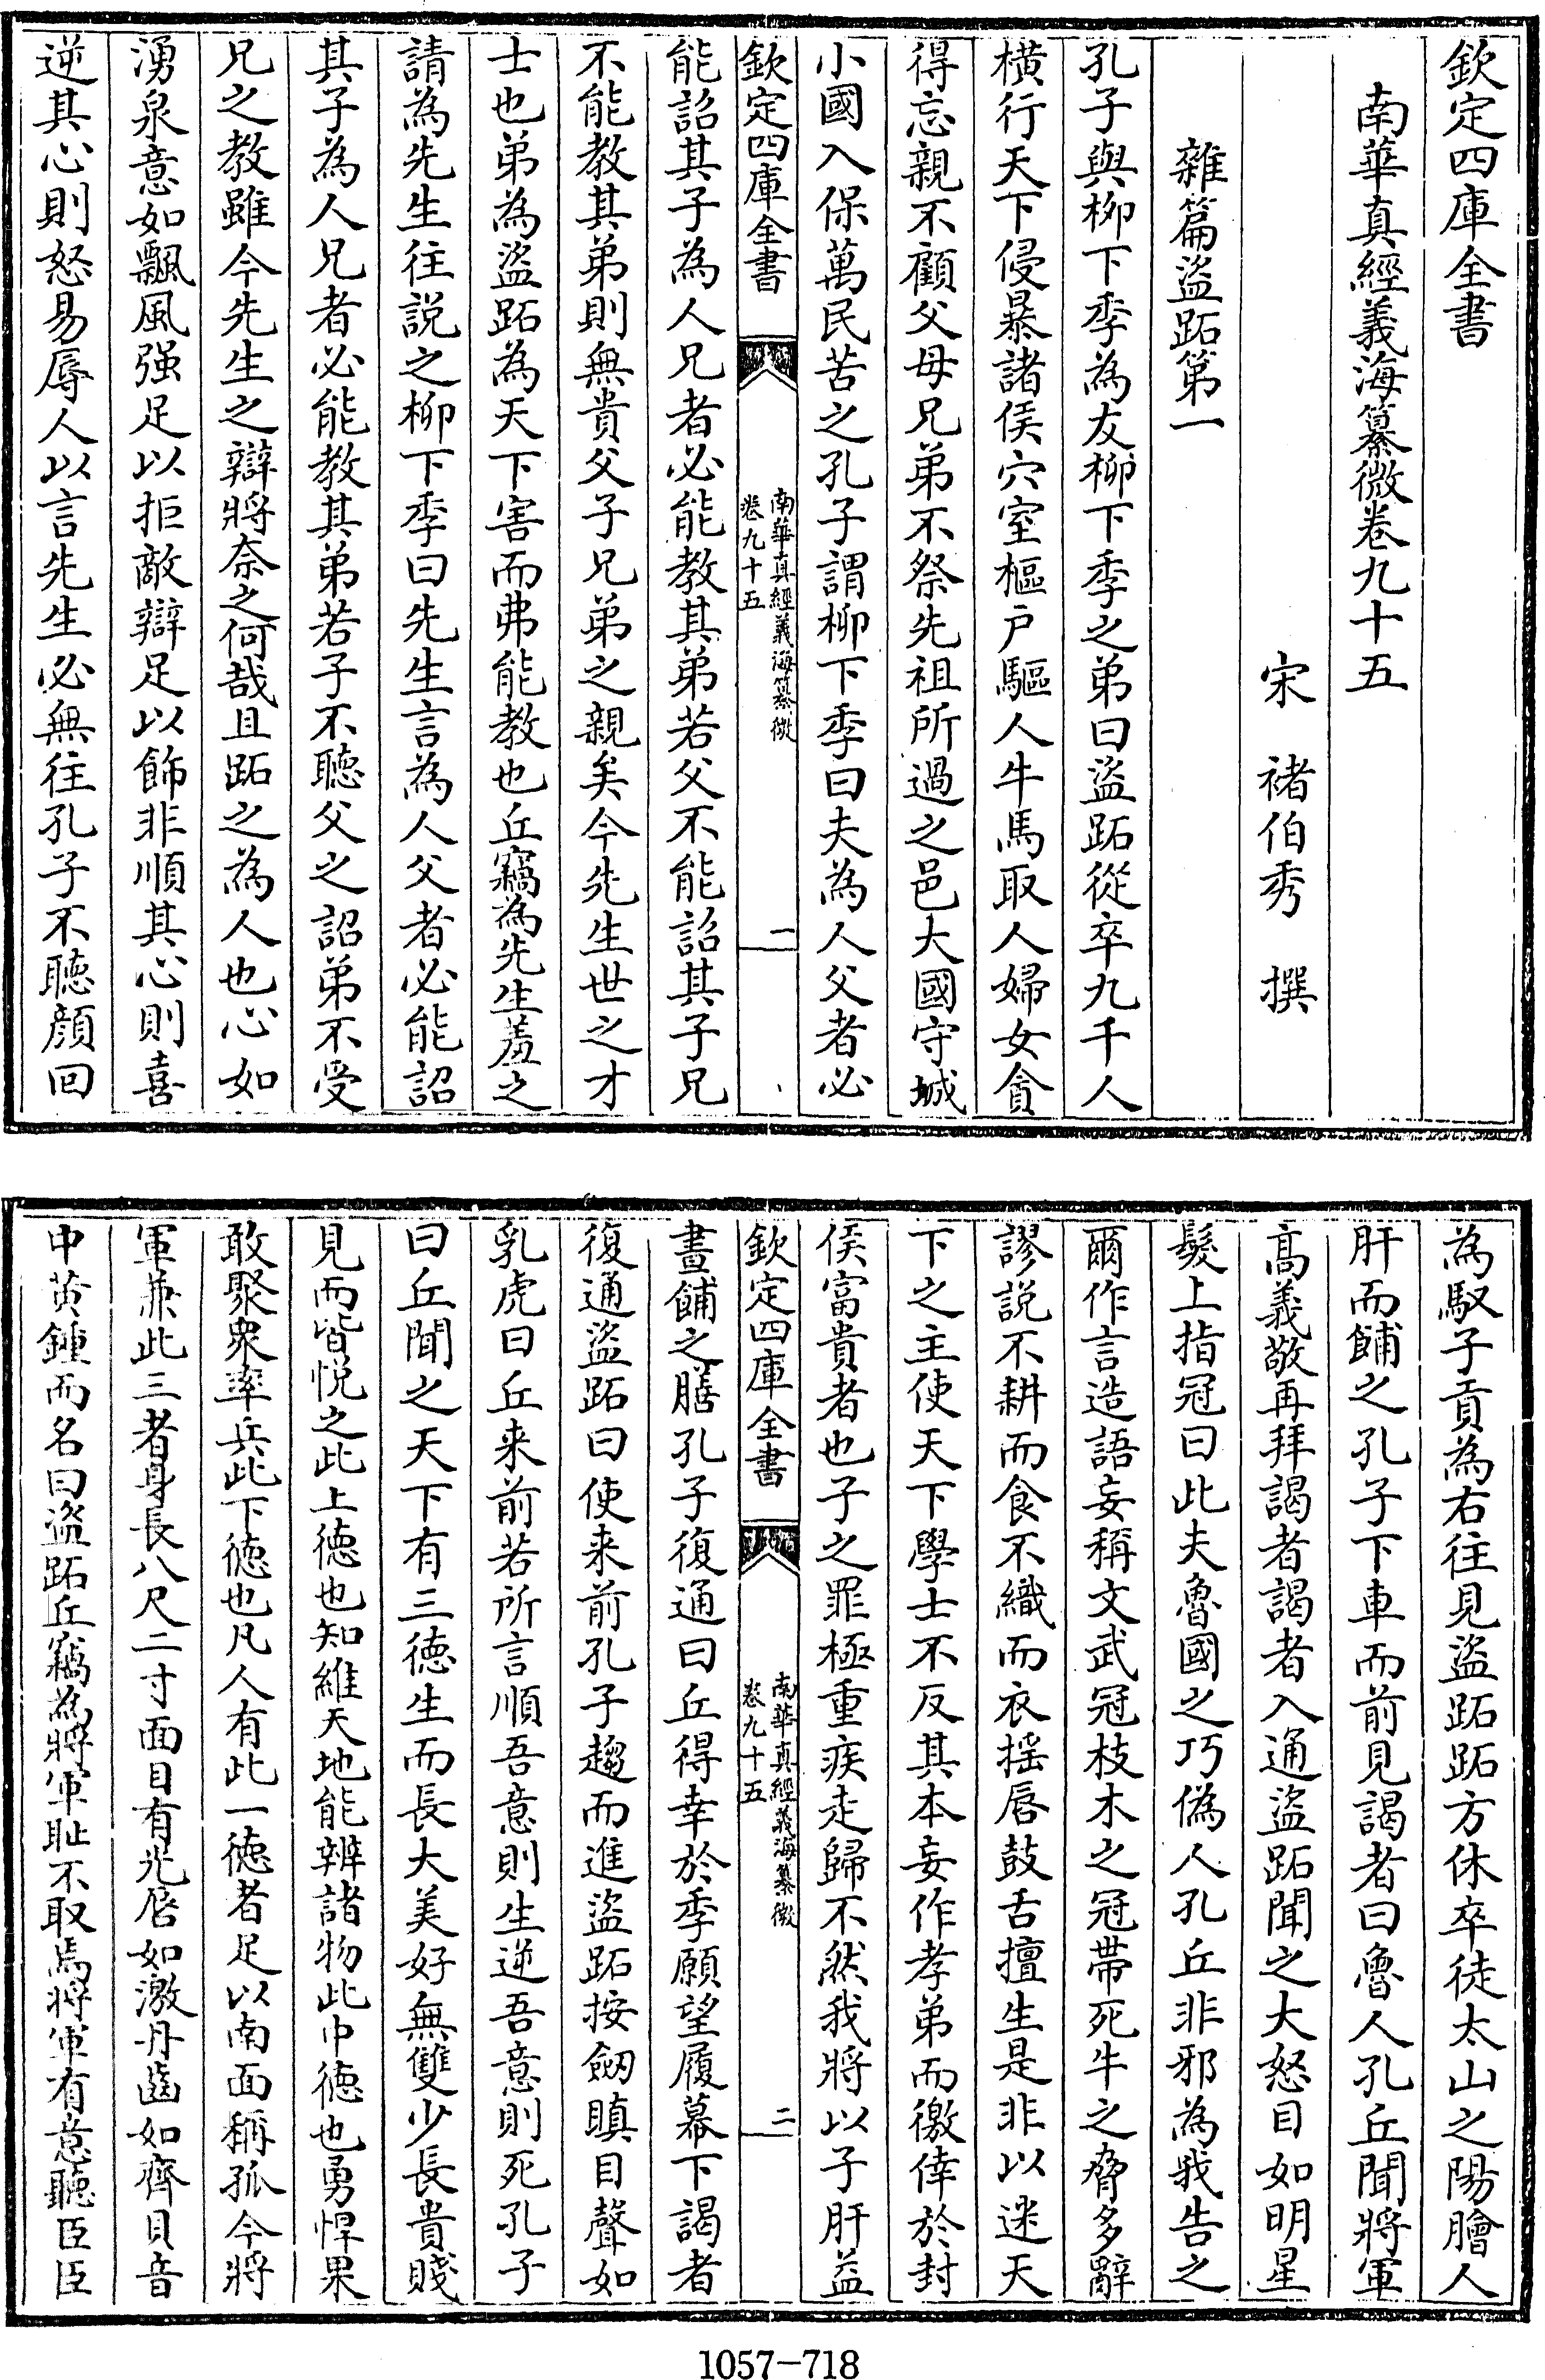 欽定四庫全書
南華真經義海纂微卷九十五
宋 褚伯秀 撰
雜篇盜跖第一
孔子與柳下季為友柳下季之弟曰盜跖從卒九千人
橫行天下侵暴諸侯穴室樞戶驅人牛馬取人婦女貪
得忘親不顧父母兄弟不祭先祖所過之邑大國守城
小國入保萬民苦之孔子謂柳下季曰夫為人父者必
欽定四庫全書
南華真經義海纂微
卷九十五
一
能詔其子為人兄者必能教其弟若父不能詔其子兄
不能教其弟則無貴父子兄弟之親矣今先生世之才
士也弟為盜跖為天下害而弗能教也丘竊為先生羞之
請為先生往說之柳下季曰先生言為人父者必能詔
其子為人兄者必能教其弟若子不聽父之詔弟不受
兄之教雖今先生之辯將奈之何哉且跖之為人也心如
湧泉意如飄風强足以拒敵辯足以飾非順其心則喜
逆其心則怒易辱人以言先生必無往孔子不聽顏回
為馭子貢為右往見盜跖跖方休卒徒太山之陽膾人
肝而餔之孔子下車而前見謁者曰魯人孔丘聞將軍
高義敬再拜謁者謁者入通盜跖聞之大怒目如明星
髮上指冠曰此夫魯國之巧偽人孔丘非邪為我告之
爾作言造語妄稱文武冠枝木之冠帶死牛之脅多辭
謬說不耕而食不織而衣揺唇鼓舌擅生是非以迷天
下之主使天下學士不反其本妄作孝弟而徼倖於封
侯富貴者也子之罪極重疾走歸不然我將以子肝益
欽定四庫全書
南華真經義海纂微
卷九十五
二
晝餔之膳孔子復通曰丘得幸於季願望履幕下謁者
復通盜跖曰使来前孔子趨而進盜跖按劒瞋目聲如
乳虎曰丘来前若所言順吾意則生逆吾意則死孔子
曰丘聞之天下有三德生而長大美好無雙少長貴賤
見而皆悅之此上德也知維天地能辨諸物此中德也勇悍果
敢聚衆率兵此下德也凡人有此一德者足以南面稱孤今將
軍兼此三者身長八尺二寸面目有光唇如激丹齒如齊貝音
中黃鍾而名曰盜跖丘竊為將軍恥不取焉將軍有意聽臣臣
1057-718